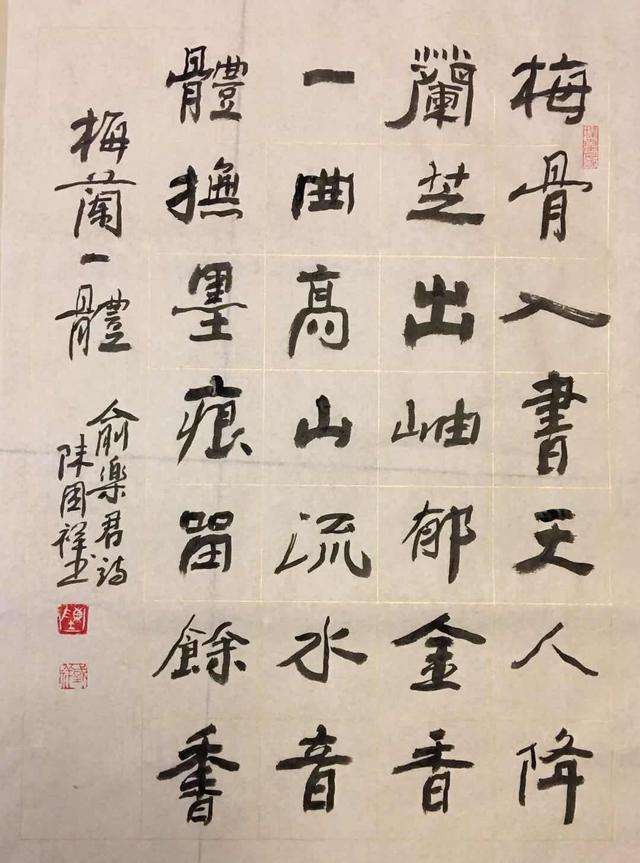 梅骨入書天人降
蘭芝出岫郁金香
一曲高山流水音
體撫墨痕留餘香
梅蘭一體
俞樂君詩
陳國祥書